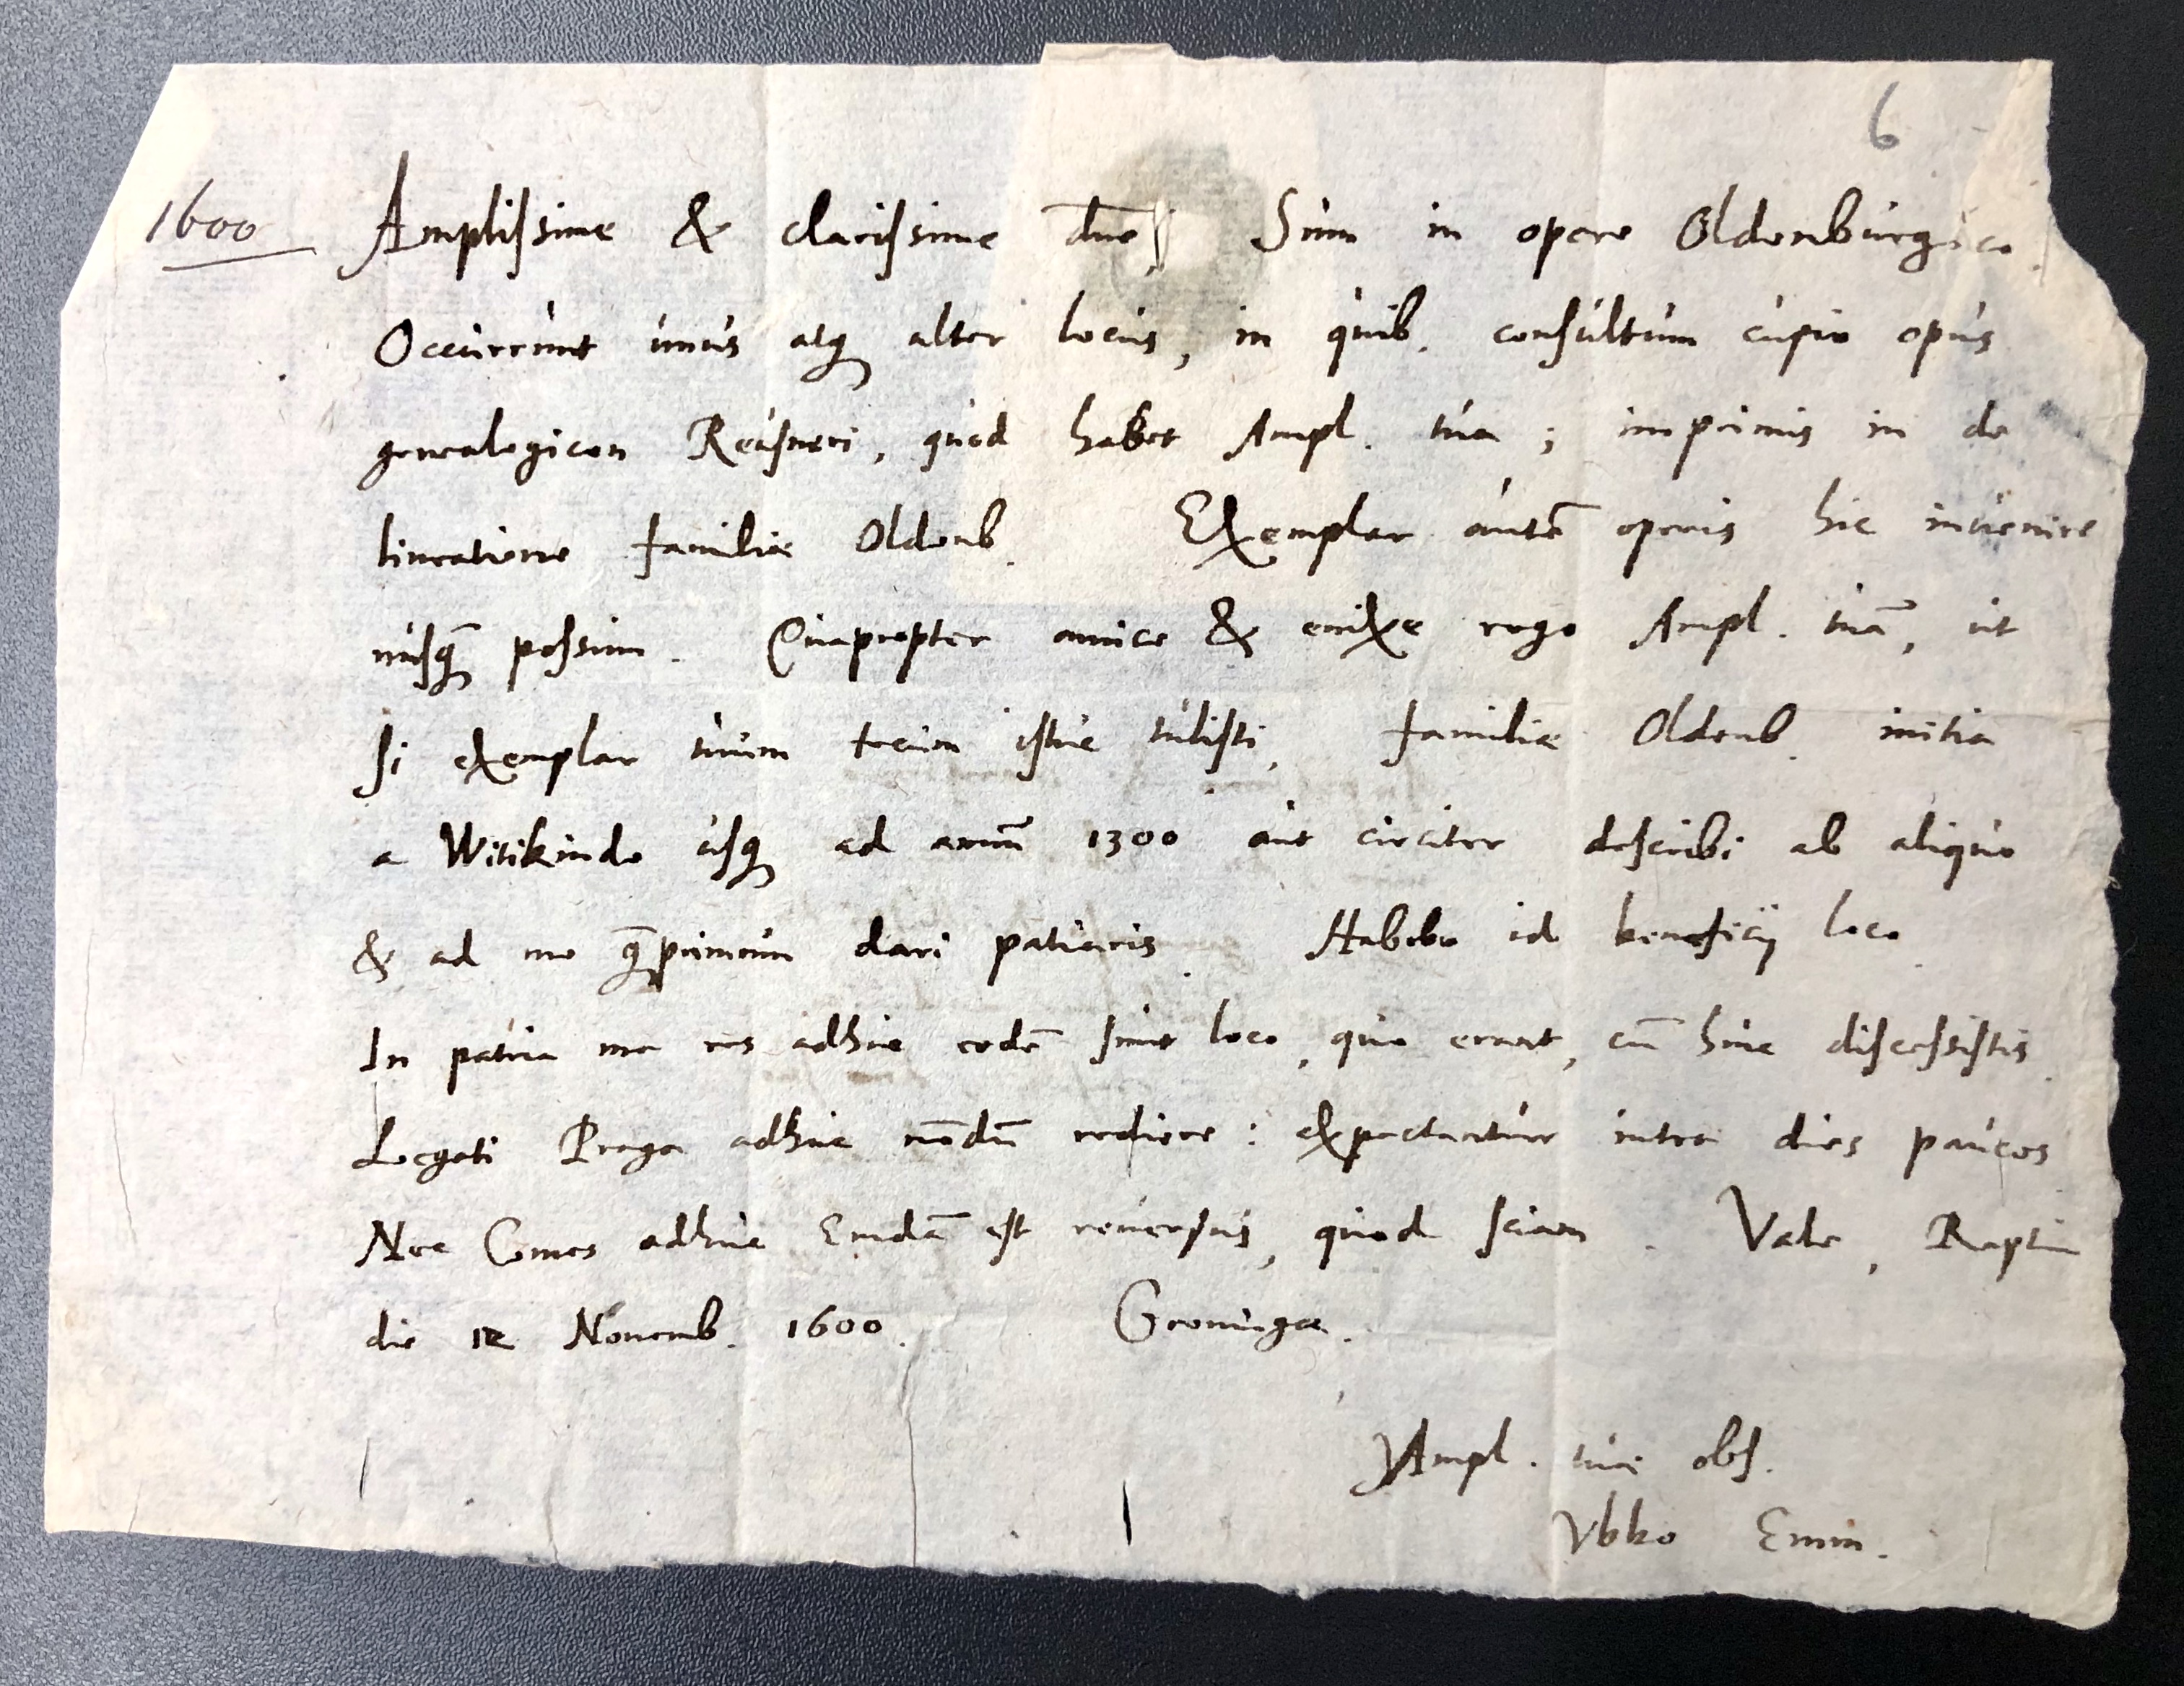 6
1600 Ampliſsime & clariſsime dn̄e, Sum in opere Oldenburgico.
Occurrunt unus atq alter locus, in quib. conſultum cupio opus
genealogicon Reuſneri, quod habet Ampl. tua; imprimis in de
lineatione familiæ Oldenb. Exemplar autē operis hic invenire
nuſq̄ poſsum. Quapropter amice & enixe rogo Ampl. tuā, ut
ſi exemplar tuum tecum iſtuc tuliſti, familiæ Oldenb. initia
a Witikindo uſq ad annū 1300 aut circiter deſcribi ab aliquo
& ad me q̄primum dari patiaris. Habebo id beneficij loco.
In patria mea res adhuc eodē ſunt loco, quo erant, cū hinc diſceſsiſtis.
Legati Praga adhuc nōdū rediere: expectantur intra dies paucos
Nec Comes adhuc Emdā eſt reverſus, quod sciam. Vale, Raptim
die 12 Novemb. 1600. Groningæ.
Ampl. tuæ obſ.
Ubbo Emm.